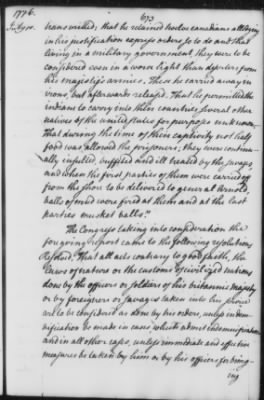 1776.
673
July 10.
transmitted, that he released twelve canadians alledging
in his justification express orders so to do and that
living in a military government, they were to be
considered even in a worse light than deserters from
his majesty's armies. These he carried away in
irons, but afterwards released. That he permitted the
indians to carry into their countries several other
natives of the united states for purposes unknown
that during the time of their captivity not half
food was allowed the prisoners; they were continu-
ally insulted, buffeted and ill treated by the savages
and when the first parties of them were carried off
from the shore to be delivered to general Arnold,
balls of mud were fired at them and at the last
parties musket balls."
The Congress taking into consideration the
foregoing report came to the following resolutions
Resolved, That all acts contrary to good faith, the
laws of nature or the customs of civilized nations
done by the officers or soldiers of his britannic majesty
or by foreigners or savages taken into his service
are to be considered as done by his orders, unless indem-
nification be made in cases which admit indemnification
and in all other cases, unless immediate and effective
measures be taken by him or by his officers for bring-
ing